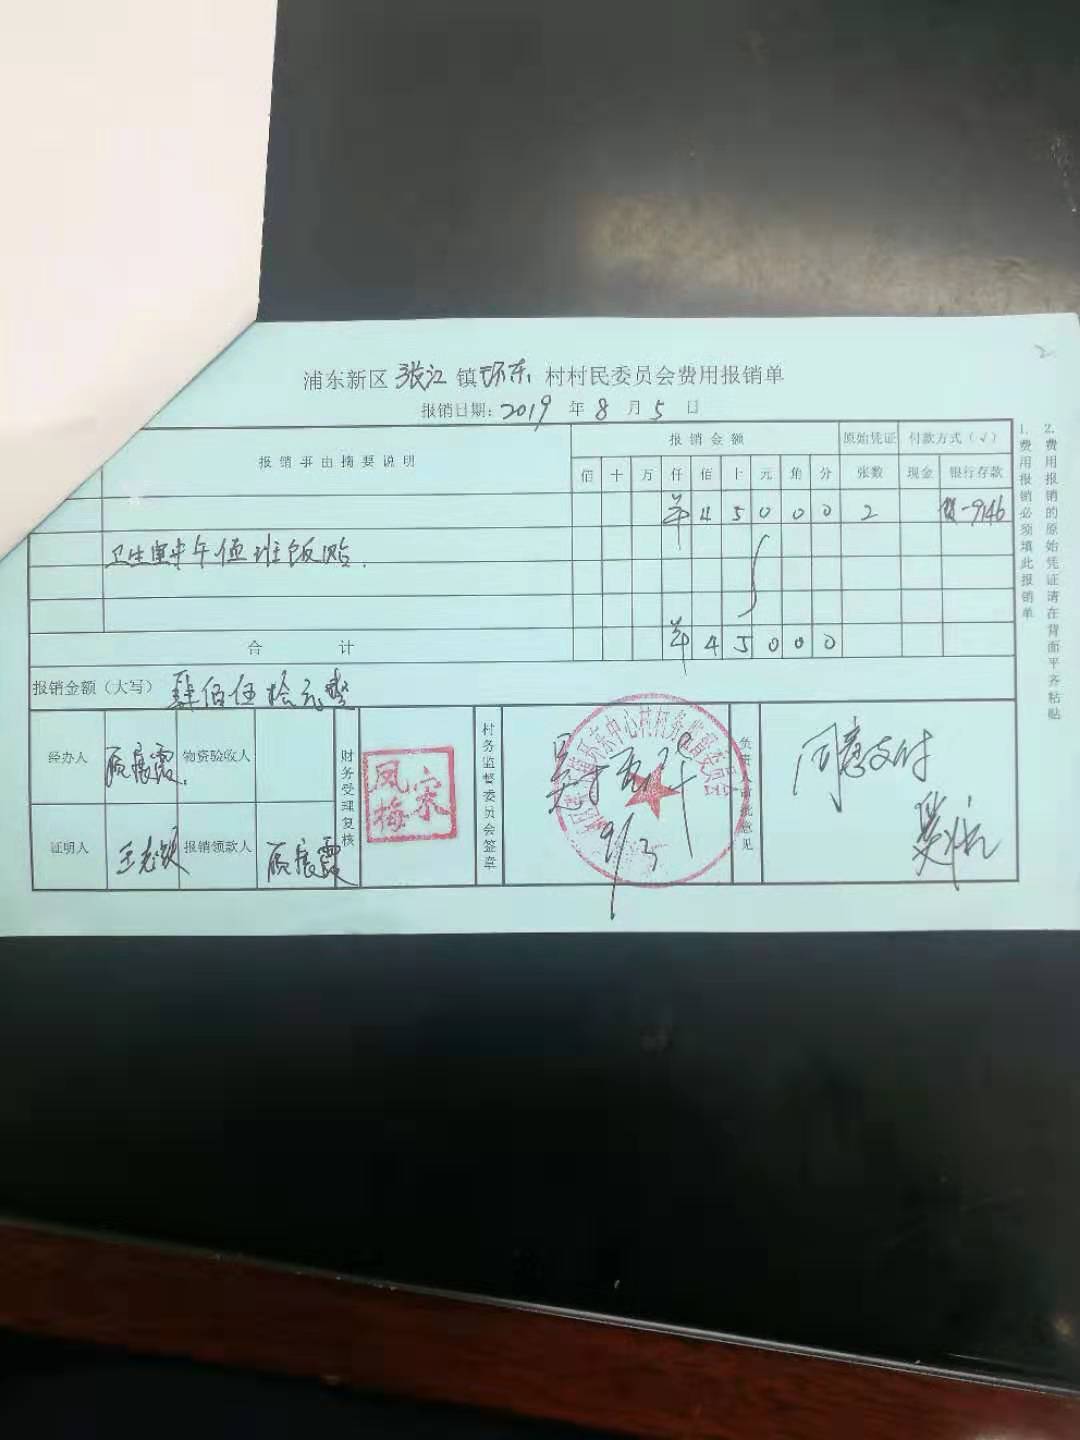 2
浦东新区 张江 镇 环东 村村民委员会费用报销单
报销日期: 2019 年 8 月 5 日
报销事由摘要说明 报销金额 原始凭证 付款方式(√)
佰 十 万 仟 佰 十 元 角 分 张数 现金 银行存款
羊 4 5 0 0 0 2 -9146
卫生室中午值班饭贴.
合计 羊 4 5 0 0 0
报销金额(大写) 肆佰伍拾元整
经办人 顾展霞. 物资验收人
证明人 报销领款人 顾展霞
财务受理复核
宋凤梅
村务监督委员会签章
9/3
负责人审批意见
同意支付
1. 费用报销必须填此报销单
2. 费用报销的原始凭证请在背面平齐粘贴